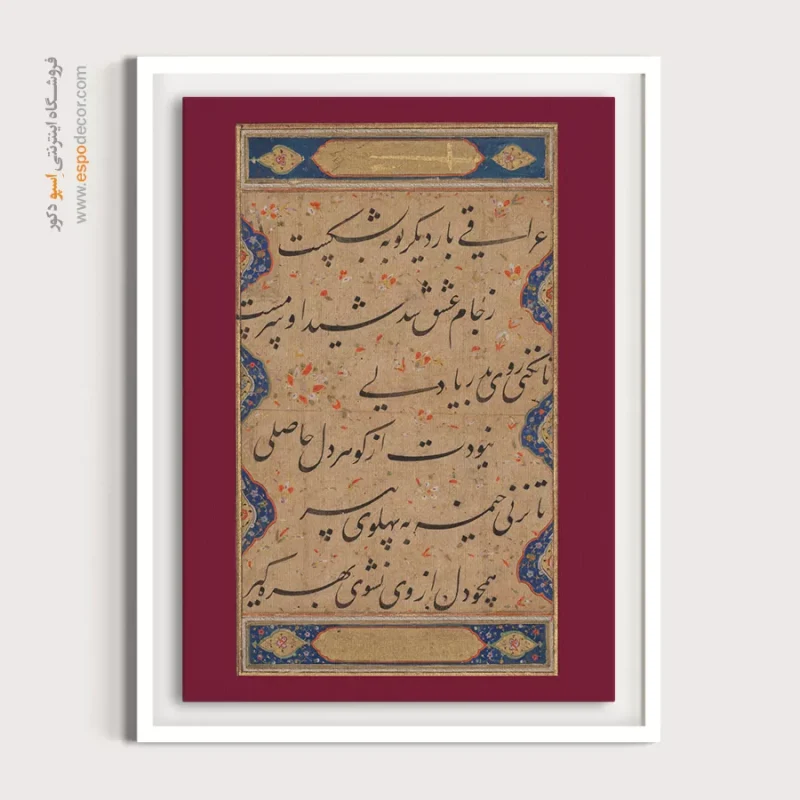 فروشگاه اینترنتی اِسپو دکور
www.espodecor.com
عراقی بار دیگر توبه بشکست
ز جام عشق شد شیدا و سرمست
تا نکنی روی بدریا دلی
نبودت از کوهر دل حاصلی
تا نزنی خیمه به پهلوی پیر
همچو دل از وی نشوی بهره کیر